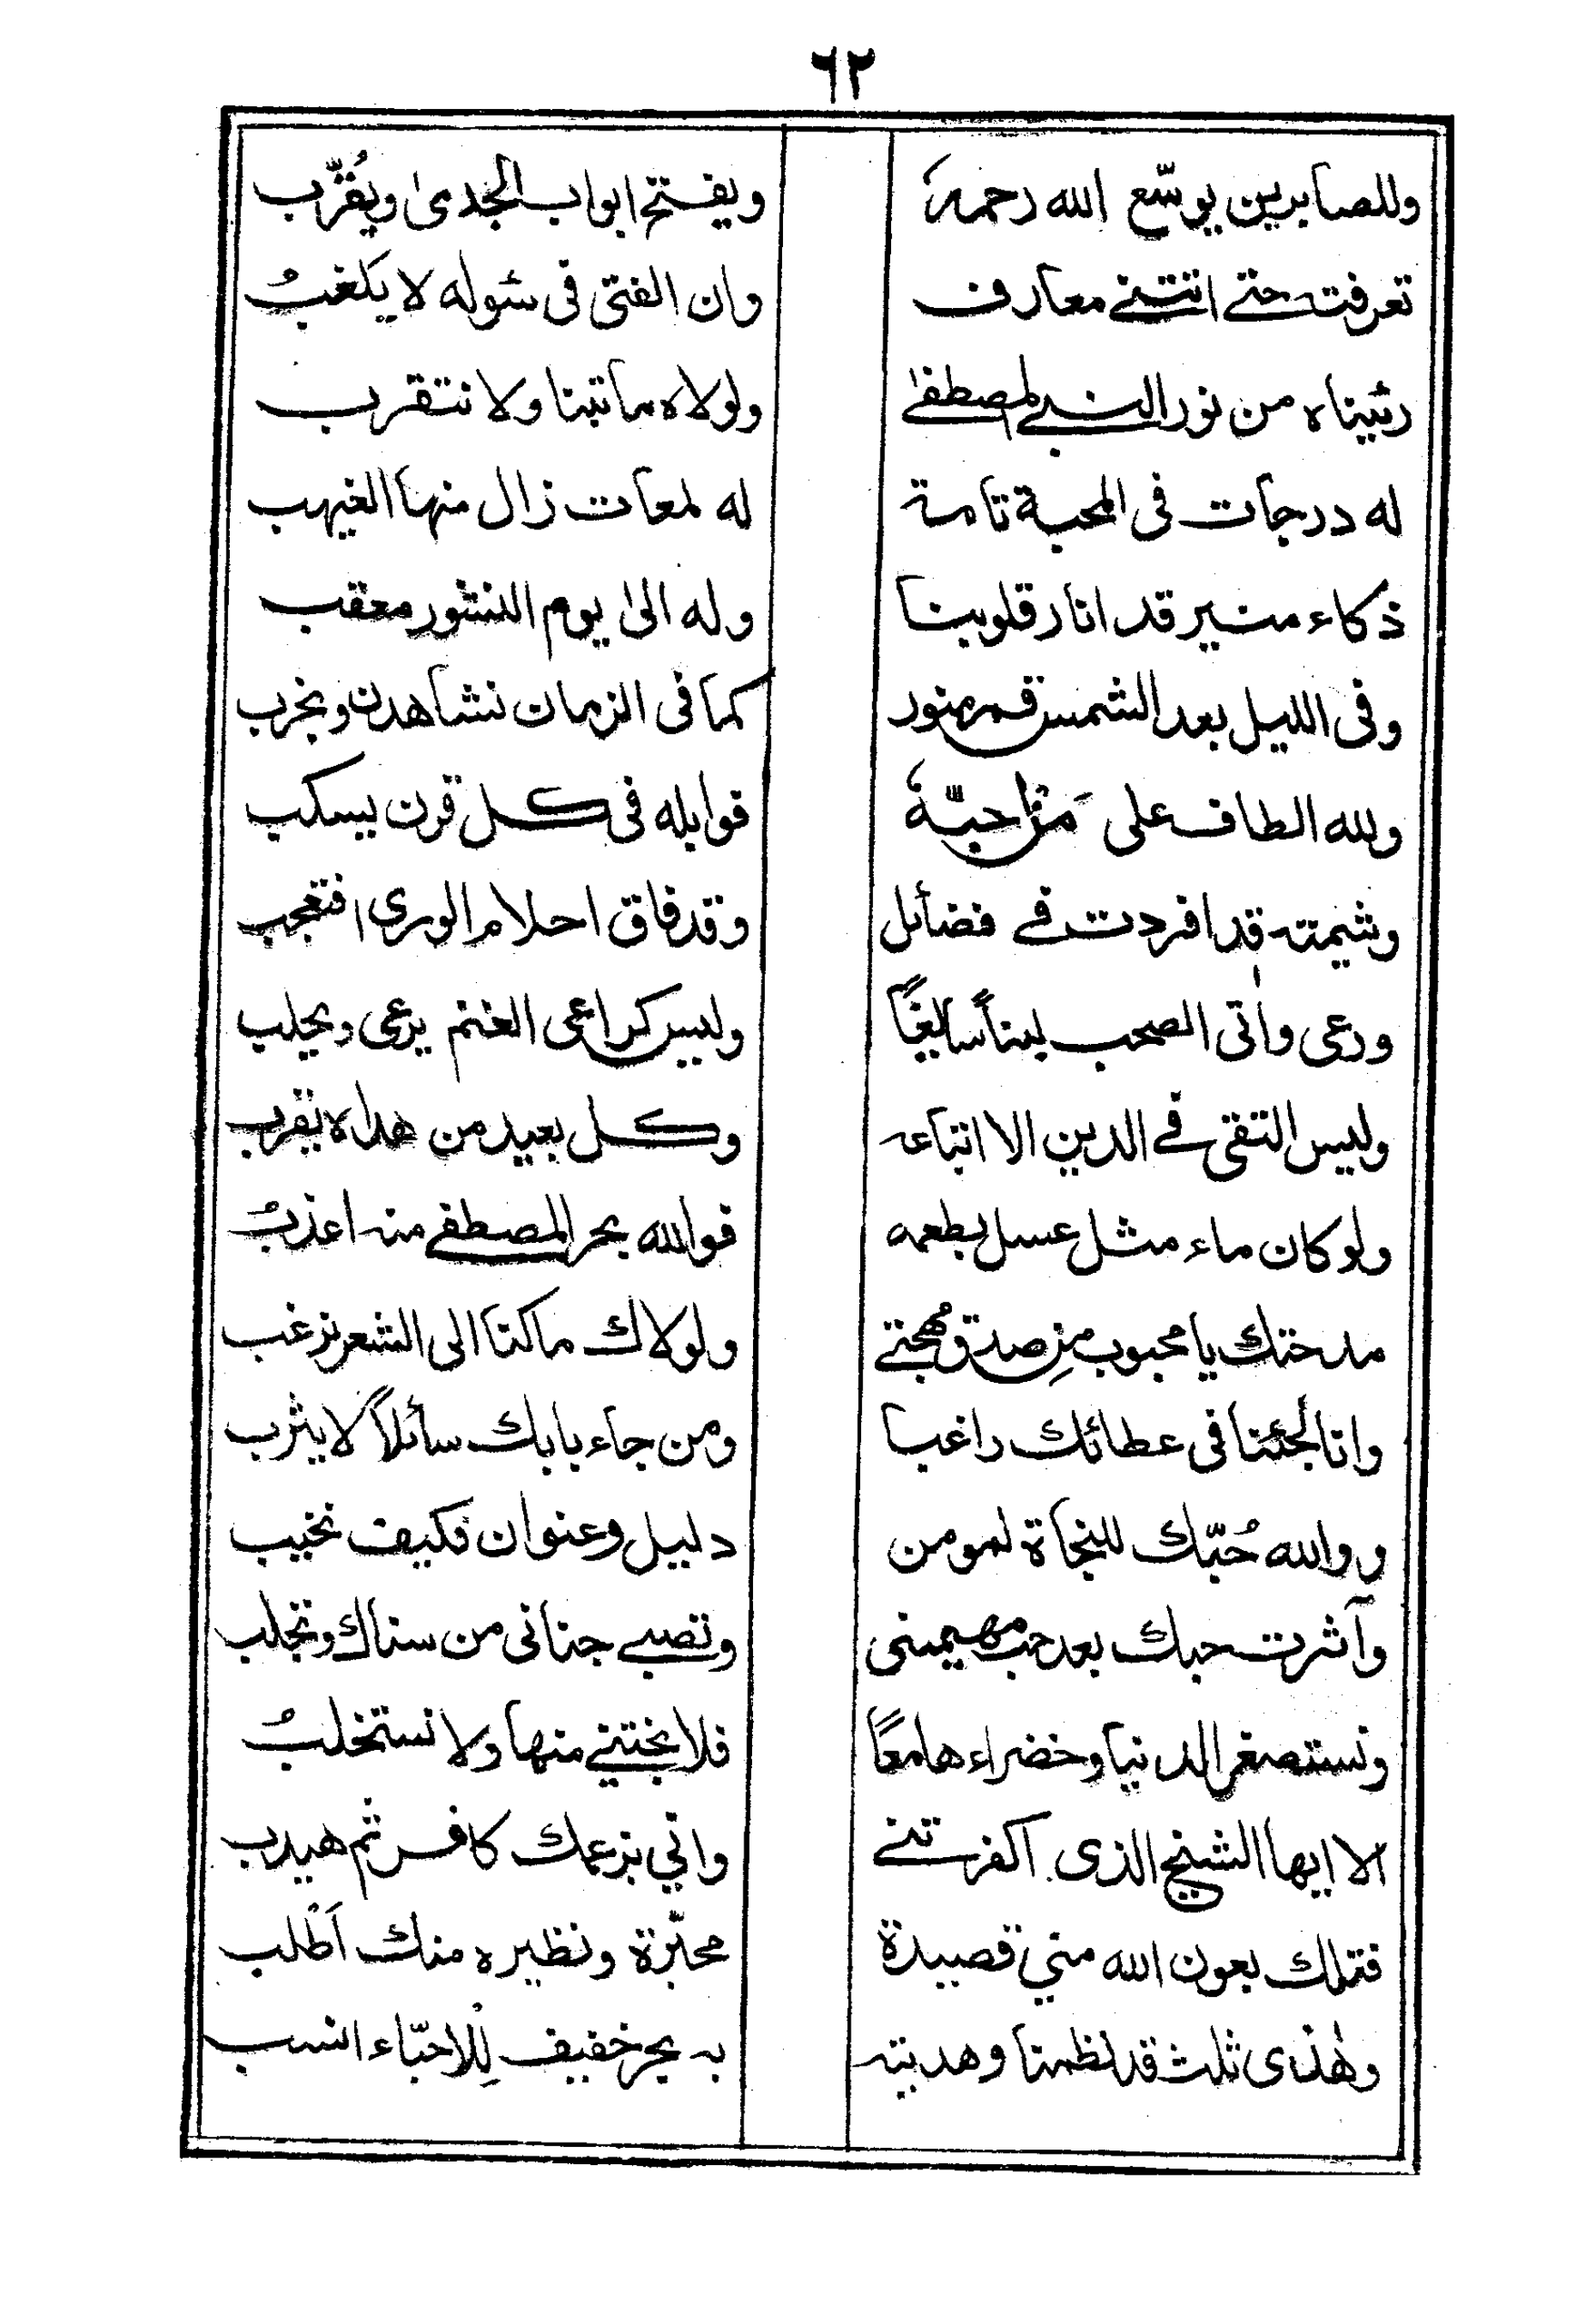 ٦٢
وللصابرين يوسّع الله رحمهٗ ويفتح ابواب الجدىٰ ويُقرّب
تعرفت حتے اتتنے معارف وان الفتى فى سوله لا يكغبُ
رئيناه من نور النبے المصطفىٰ ولولاه ما تبنا ولا نتقرب
له درجات فى المحبة تامة له لمعات زال منها الغيهب
ذكاء منير قد انار قلوبنا وله الىٰ يوم النشور معقب
وفى الليل بعد الشمس قمر منور كما فى الزمان نشاهدن ونجرب
ولله الطاف على مَن احبّهٗ فوابله فى كل قرن يسكب
وشيمته قد افردت فے فضائل وقد فاق احلام الورى افتعجب
ورعى واٰتى الصحب لبناً سائغاً وليس كراعى الغنم يرعى ويحلب
وليس التقى فے الدين الا اتباعه وكل بعيد من هداه يقرب
ولو كان ماء مثل عسل بطعمه فوالله بحر المصطفے منه اعذبُ
مدحتك يا محبوب مِن صدق مهجتے ولولاك ما كنا الى الشعر نرغب
وانا لجئنا فى عطائك راغبا ومن جاء بابك سائلاً لا يثرب
ووالله حُبّك للنجاة لمومن دليل وعنوان فكيف نخيب
وآثرت حبك بعد حب مهيمنى وتصبے جنانى من سناك وتجلب
ونستصغر الدنيا وخضراءها معاً فلا يجتنے منها ولا نستخلبُ
الا ايها الشيخ الذى اكفرتنے واني بزعمك كافر ثم هيدب
فتلك بعون الله منے قصيدة محبّرة ونظيره منك اَطْلب
وهٰذى ثلث قد نظمنا وهدبته به بحر خفيف لِلْاحبّاء انسب